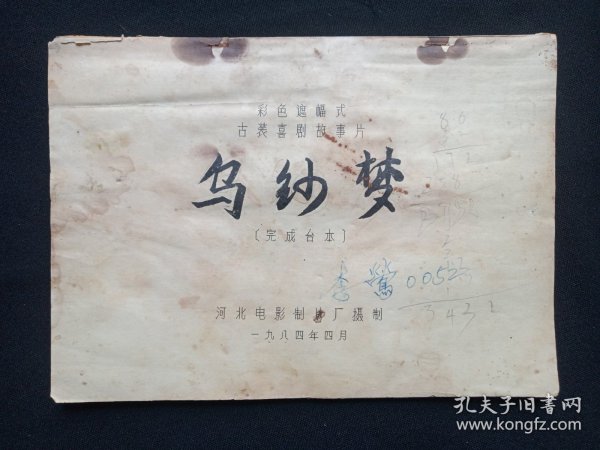 彩色遮幅式
古装喜剧故事片
乌纱梦
〔完成台本〕
李莺00523
河北电影制片厂摄制
一九八四年四月
孔夫子旧书网
www.kongfz.com